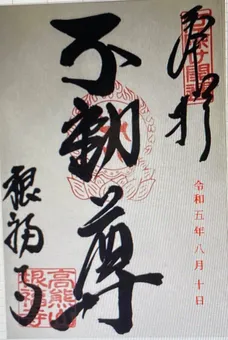 奉拝
令和五年八月十日
不動尊
銀福寺
高熊山
銀福寺